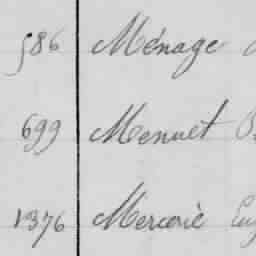 586 Ménage
699 Menuet
1376 Mercerie